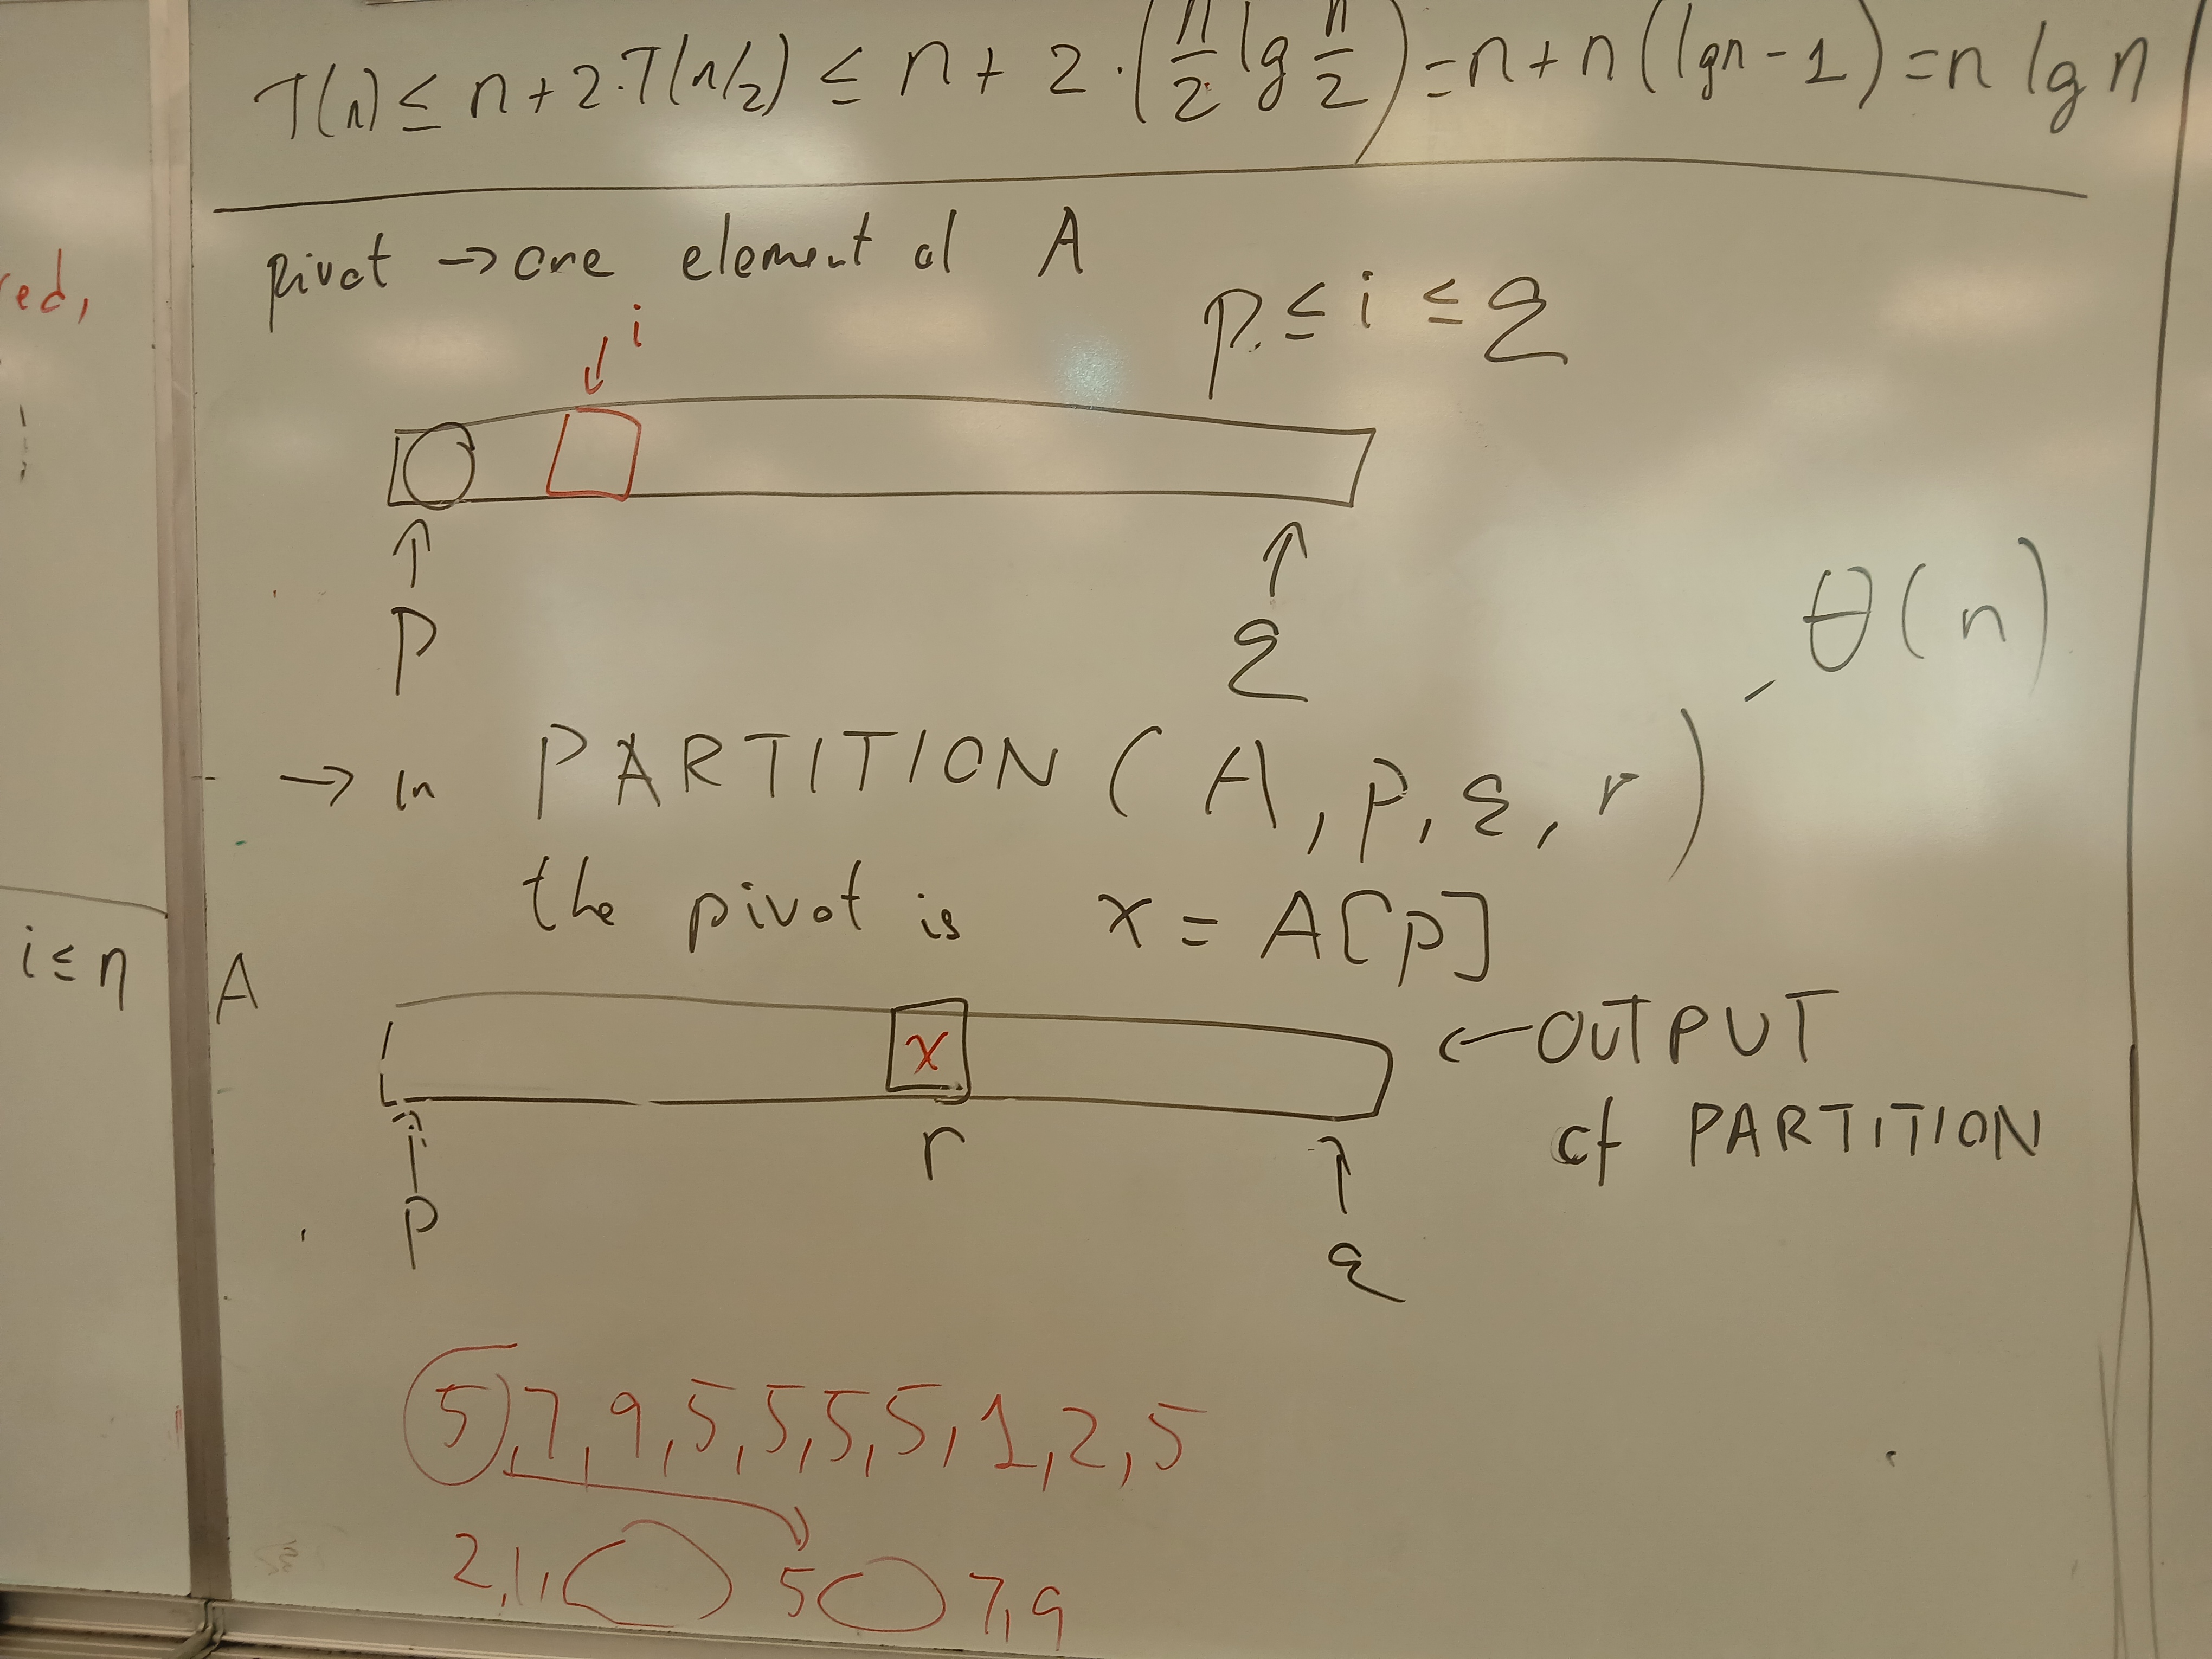 T(n) ≤ n + 2·T(n/2) ≤ n + 2·(n/2 lg n/2) = n + n(lg n - 1) = n lg n
pivot → one element of A
ed,
p ≤ i ≤ q
i
p
q
θ(n)
→ in PARTITION (A, p, q, r)
the pivot is x = A[p]
i ≤ n
A
x
← OUTPUT
of PARTITION
p
r
q
5, 7, 9, 5, 5, 5, 5, 1, 2, 5
2, 1, 5 7, 9